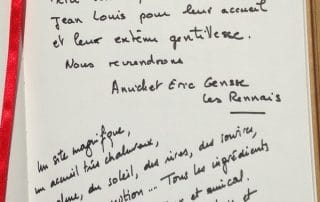 Jean Louis pour leur accueil
et leur extême gentillesse.
Nous reviendrons
Eric Gensse
Les Rennais
Un site magnifique,
un accueil très chaleureux,
du soleil, des rires, des sourires,
... Tous les ingrédients
et amical.
et